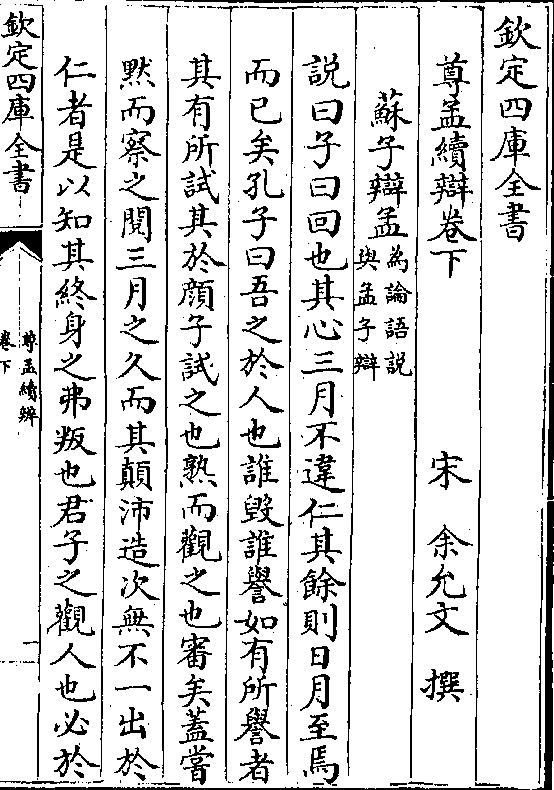 欽定四庫全書
尊孟續辯卷下
宋 余允文 撰
蘇子辯孟為論語説與孟子辯
説曰子曰回也其心三月不違仁其餘則日月至焉
而已矣孔子曰吾之於人也誰毀誰譽如有所譽者
其有所試其於顔子試之也熟而觀之也審矣蓋嘗
黙而察之閲三月之久而其顛沛造次無不一出於
仁者是以知其終身之弗叛也君子之觀人也必於
欽定四庫全書
尊孟續辨
卷下
一